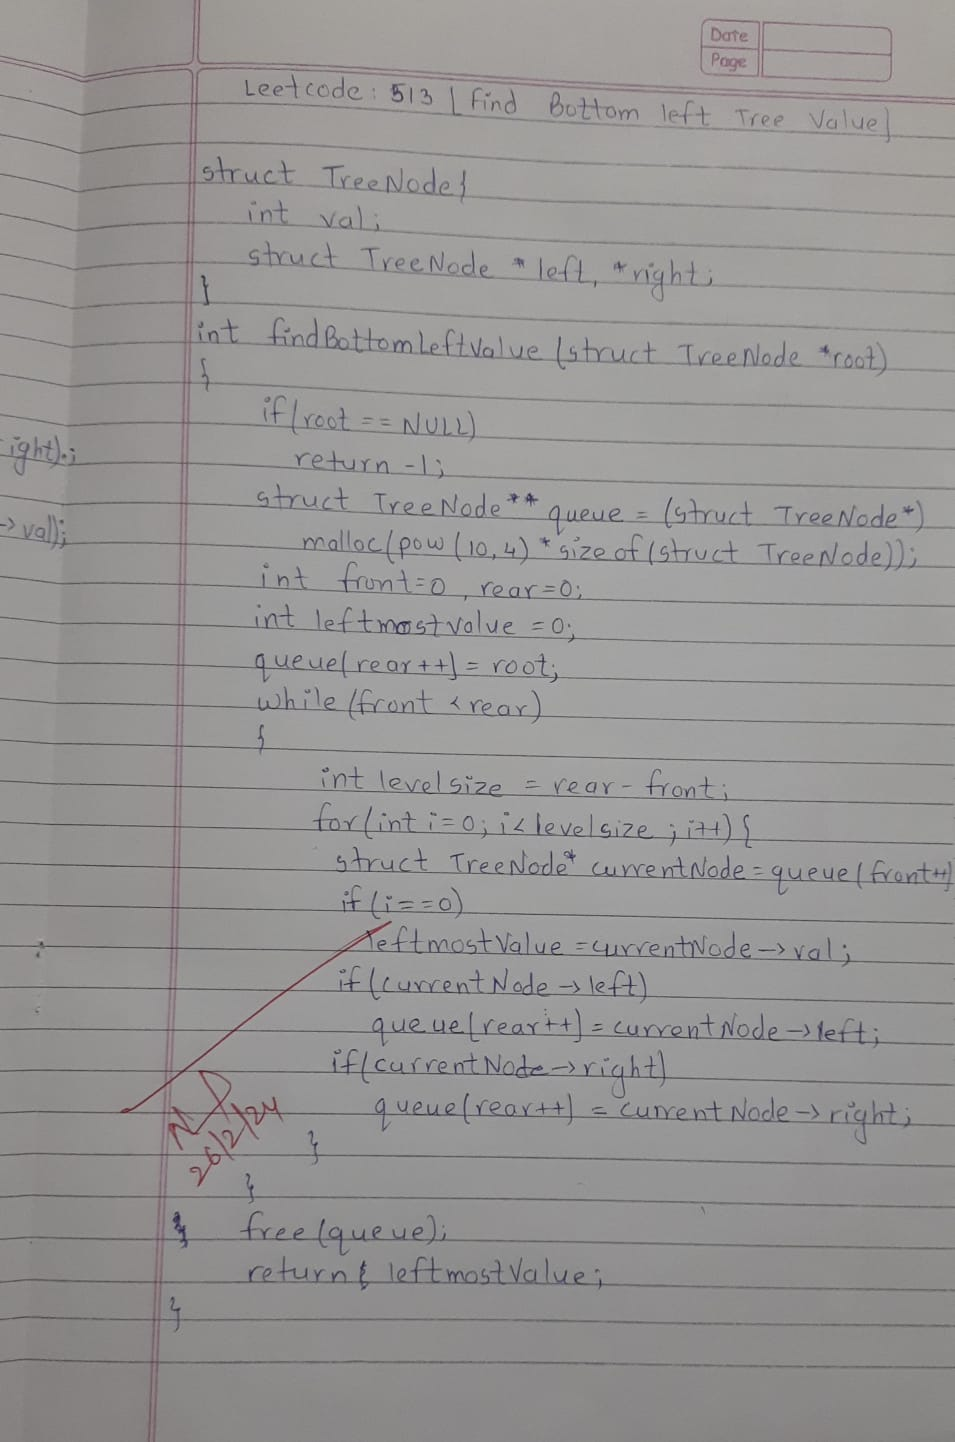 Date
Page
Leetcode: 513 [Find Bottom left Tree Value]
struct TreeNode{
int val;
struct TreeNode *left, *right;
}
int findBottomLeftValue (struct TreeNode *root)
{
if(root == NULL)
return -1;
struct TreeNode** queue = (struct TreeNode*)
malloc(pow(10,4) * sizeof(struct TreeNode));
int front=0, rear=0;
int leftmostvalue = 0;
queue[rear++] = root;
while(front < rear)
{
int levelsize = rear - front;
for(int i=0; i<levelsize; i++){
struct TreeNode* currentNode = queue[front++]
if(i==0)
leftmostValue = currentNode->val;
if(currentNode->left)
queue[rear++] = currentNode->left;
if(currentNode->right)
queue[rear++] = currentNode->right;
}
}
free(queue);
return leftmostValue;
}
ight);
->val);
26/2/24